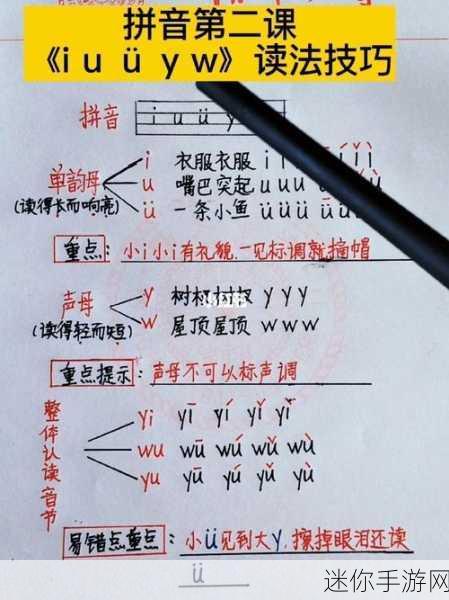 拼音第二课
《i u ü y w》读法技巧
拼音 i u ü y
单韵母 (读得长而响亮)
i 衣服衣服 i i
u 嘴巴突起 u u u
ü 一条小鱼 ü ü ü
重点: 小i小i有礼貌,一见标调就摘帽
声母 (读得轻而短)
y 树杈树杈 y y y
w 屋顶屋顶 w w w
重点提示: 声母不可以标声调
整体认读音节
yi yī yí yǐ yì
wu wū wú wǔ wù
yu yū yú yǔ yù
易错点重点: 小ü见到大y,擦掉眼泪还读
ü
迷你手游网